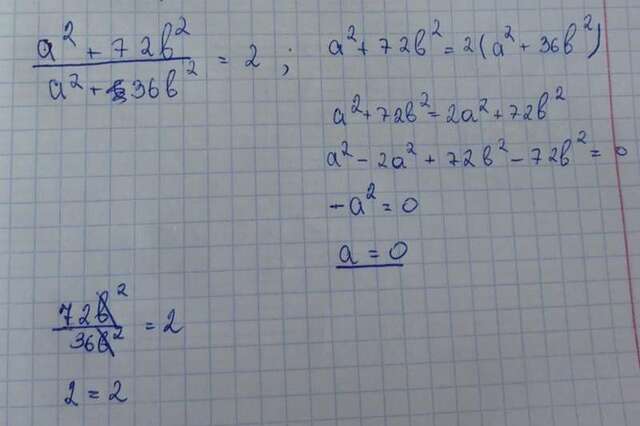 a² + 72b² / a² + 36b² = 2 ;
a² + 72b² = 2(a² + 36b²)
a² + 72b² = 2a² + 72b²
a² - 2a² + 72b² - 72b² = 0
-a² = 0
a = 0
72b² / 36b² = 2
2 = 2